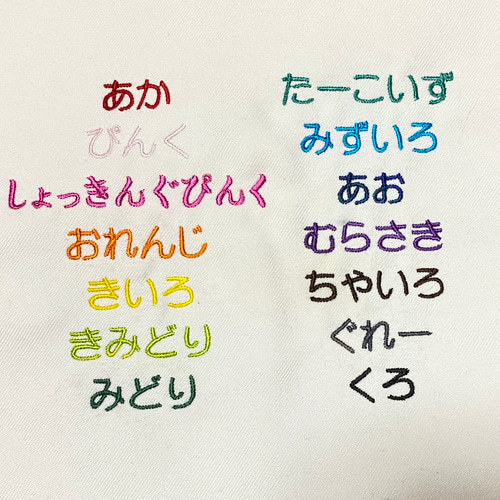 あか
ぴんく
しょっきんぐぴんく
おれんじ
きいろ
きみどり
みどり
たーこいず
みずいろ
あお
むらさき
ちゃいろ
ぐれー
くろ